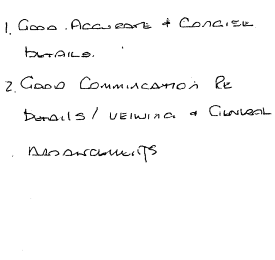 1. GOOD. ACCURATE & CONCISE
DETAILS.
2. GOOD COMMUNCATION RE
DETAILS / VEIWING & GENERAL